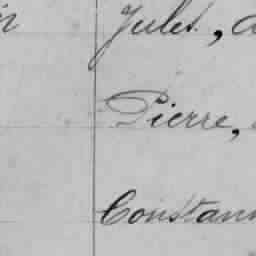 Jules,
Pierre,
Constan